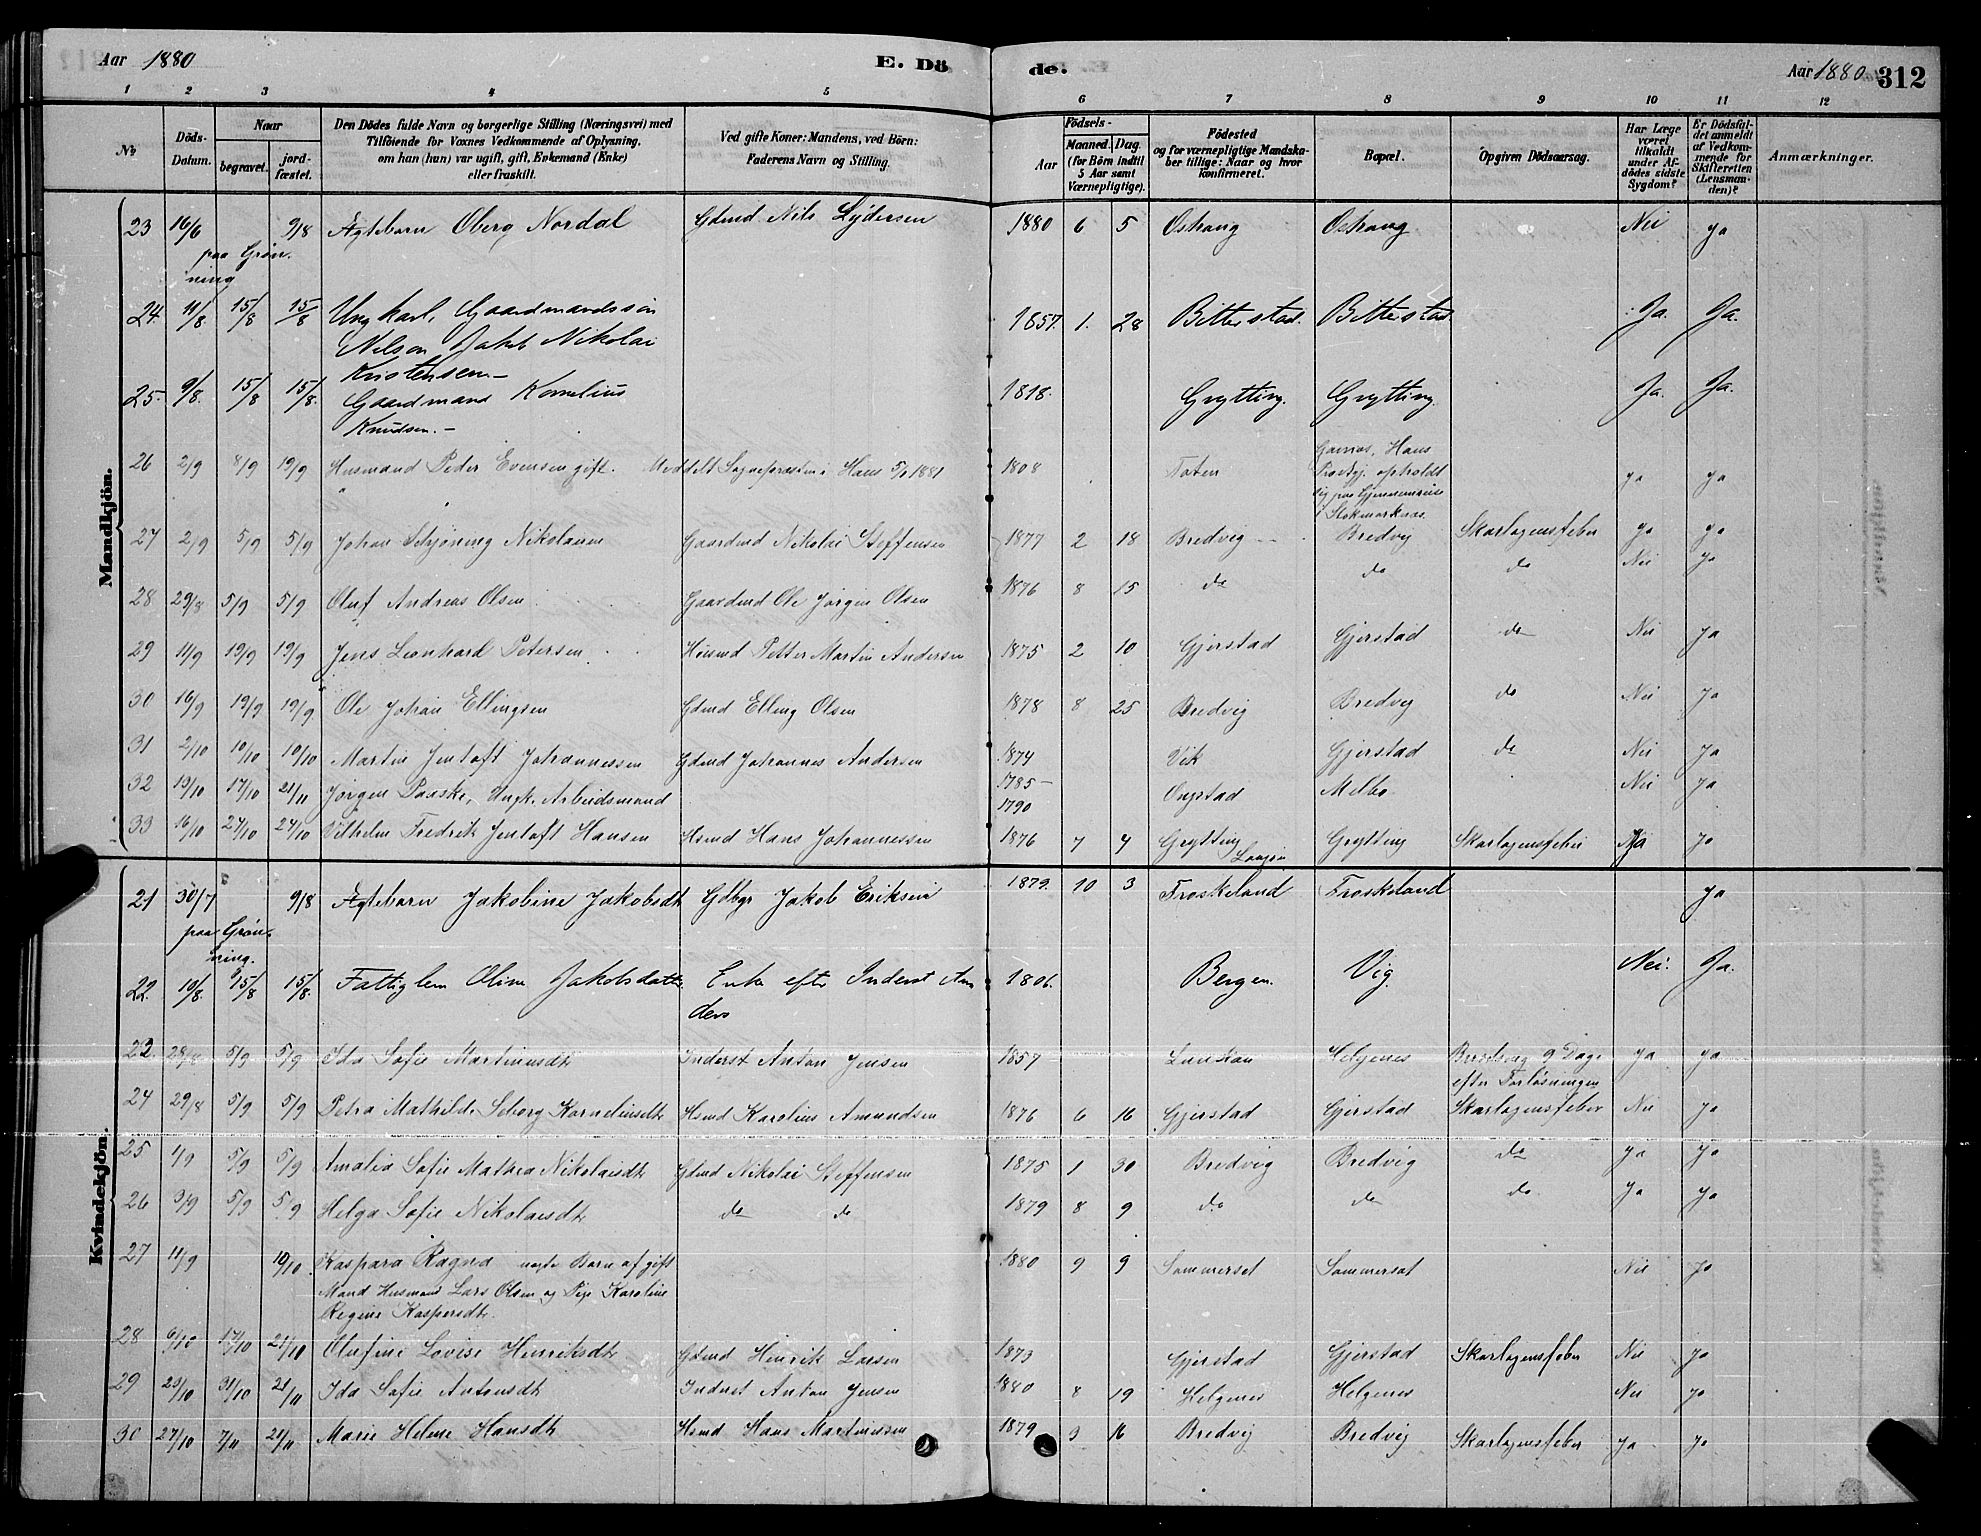 Aar 1880 E. Dö
de. Aar 1880 312
1 2 3 4 5 6 7 8 9 10 11 12
No
Döds-Datum.
Naar
begravet.
jord-fæstet.
Den Dödes fulde Navn og borgerlige Stilling (Næringsvei) med
Tilföiende for Voxnes Vedkommende af Oplysning,
om han (hun) var ugift, gift, Enkemand (Enke)
eller fraskilt.
Ved gifte Koner: Mandens, ved Börn:
Faderens Navn og Stilling.
Födsels-
Aar
Maaned. Dag.
(for Börn indtil
5 Aar samt
Værnepligtige).
Födested
og for værnepligtige Mandska-
ber tillige: Naar og hvor
konfirmeret.
Bopæl.
Opgiven Dödsaarsag.
Har Læge
været
tilkaldt
under Af-
dödes sidste
Sygdom?
Er Dödsfal-
det anmeldt
af Vedkom-
mende for
Skifteretten
(Lensman-
den)?
Anmærkninger.
Mandkjön.
23 16/6 9/8 Ægtebarn Oberg Nordal Gdmd Nils Lydersen 1880 6 5 Ostrang Ostrang Nei ja
paa Grön-
ning
24. 11/8. 15/8 15/8 Ungkarl, Gaardmandssön 1857. 1. 28 Bitterstad. Bitterstad. Ja. Ja.
Nilsen Jakob Nikolai
Kristensen.-
25. 9/8. 15/8 15/8. Gaardmand Kornelius 1818. Grytting. Grytting. Ja. Ja.
Knudsen.-
26 2/9 8/9 19/9 Husmand Peder Evensen gift. Meddelt Sognepræsten i Hans 5/1 1881 1808 Toten Gaarnas, Hans ja ja
Prestgj. opholdt
sig paa Gjennemreise
i Stokmarknæs
27 2/9 5/9 5/9 Johan Schjöning Nikolaisen Gaardmd Nikolai Steffensen 1877 2 18 Bredvig Bredvig Skarlagensfeber ja ja
28 29/8 5/9 5/9 Oluf Andreas Olsen Gaardmd Ole Jörgen Olsen 1876 8 15 do do do Nei ja
29 11/9 19/9 19/9 Jens Leonhard Petersen Husmd Petter Martin Andersen 1875 2 10 Gjerstad Gjerstad do Nei ja
30 16/9 19/9 19/9 Ole Johan Ellingsen Gdmd Elling Olsen 1878 8 25 Bredvig Bredvig do Nei ja
31 2/10 10/10 10/10 Martin Jentoft Johannessen Gdmd Johannes Andersen 1874 Vik Gjerstad do Nei ja
32 13/10 17/10 21/11 Jörgen Paaske, Ungk. Arbeidsmand 1785- Ongstad Melbo Nei ja
1790
33 16/10 24/10 24/10 Vilhelm Fredrik Jentoft Hansen Hsmd Hans Johannessen 1876 7 4 Grytting Grytting Skarlagensfeber Ja ja
Kvindekjön.
21 30/7 9/8 Ægtebarn Jakobine Jakobsdt Gdbgr Jakob Eriksen 1879. 10 3 Froskeland Froskeland ja
paa Grön-
ning.
22. 10/8. 15/8 15/8. Fattiglem Oline Jakobsdatter Enke efter Inderst An 1806. Bergen. Vig. Nei. Ja.
ders
23. 28/8 5/9 5/9 Ida Sofie Martinusdt Inderst Anton Jensen 1857 Helgenes 9 Dage ja ja
efter Forlösningen
24 29/8 5/9 5/9 Petra Mathilde Seberg Korneliusdt Hsmd Karolius Amundsen 1876 6 16 Gjerstad Gjerstad Skarlagensfeber Nei ja
25 1/9 5/9 5/9 Amalia Sofie Mathea Nikolaisdt Gdmd Nikolai Steffensen 1875 1 30 Bredvig Bredvig do ja ja
26 3/9 5/9 5/9 Helga Sofie Nikolaisdt do do 1879 8 9 do do do ja ja
27 11/9 10/10 Kaspara Ragna uægte Barn af gift 1880 9 9 Sommerset Sommerset Nei ja
Mand Husmand Lars Olsen og Pige Karoline
Regine Kaspersdt.
28 6/10 17/10 21/10 Olufine Lovise Hinriksdt Gdmd Hinrik Larsen 1873 Gjerstad Gjerstad Skarlagensfeber Nei ja
29 23/10 31/10 21/11 Ida Sofie Antonsdt Inderst Anton Jensen 1880 8 19 Helgenes Helgenes Nei ja
30 27/10 7/11 21/11 Marie Helene Hansdt Hsmd Hans Martinussen 1879 3 16 Bredvig Bredvig Skarlagensfeber ja ja